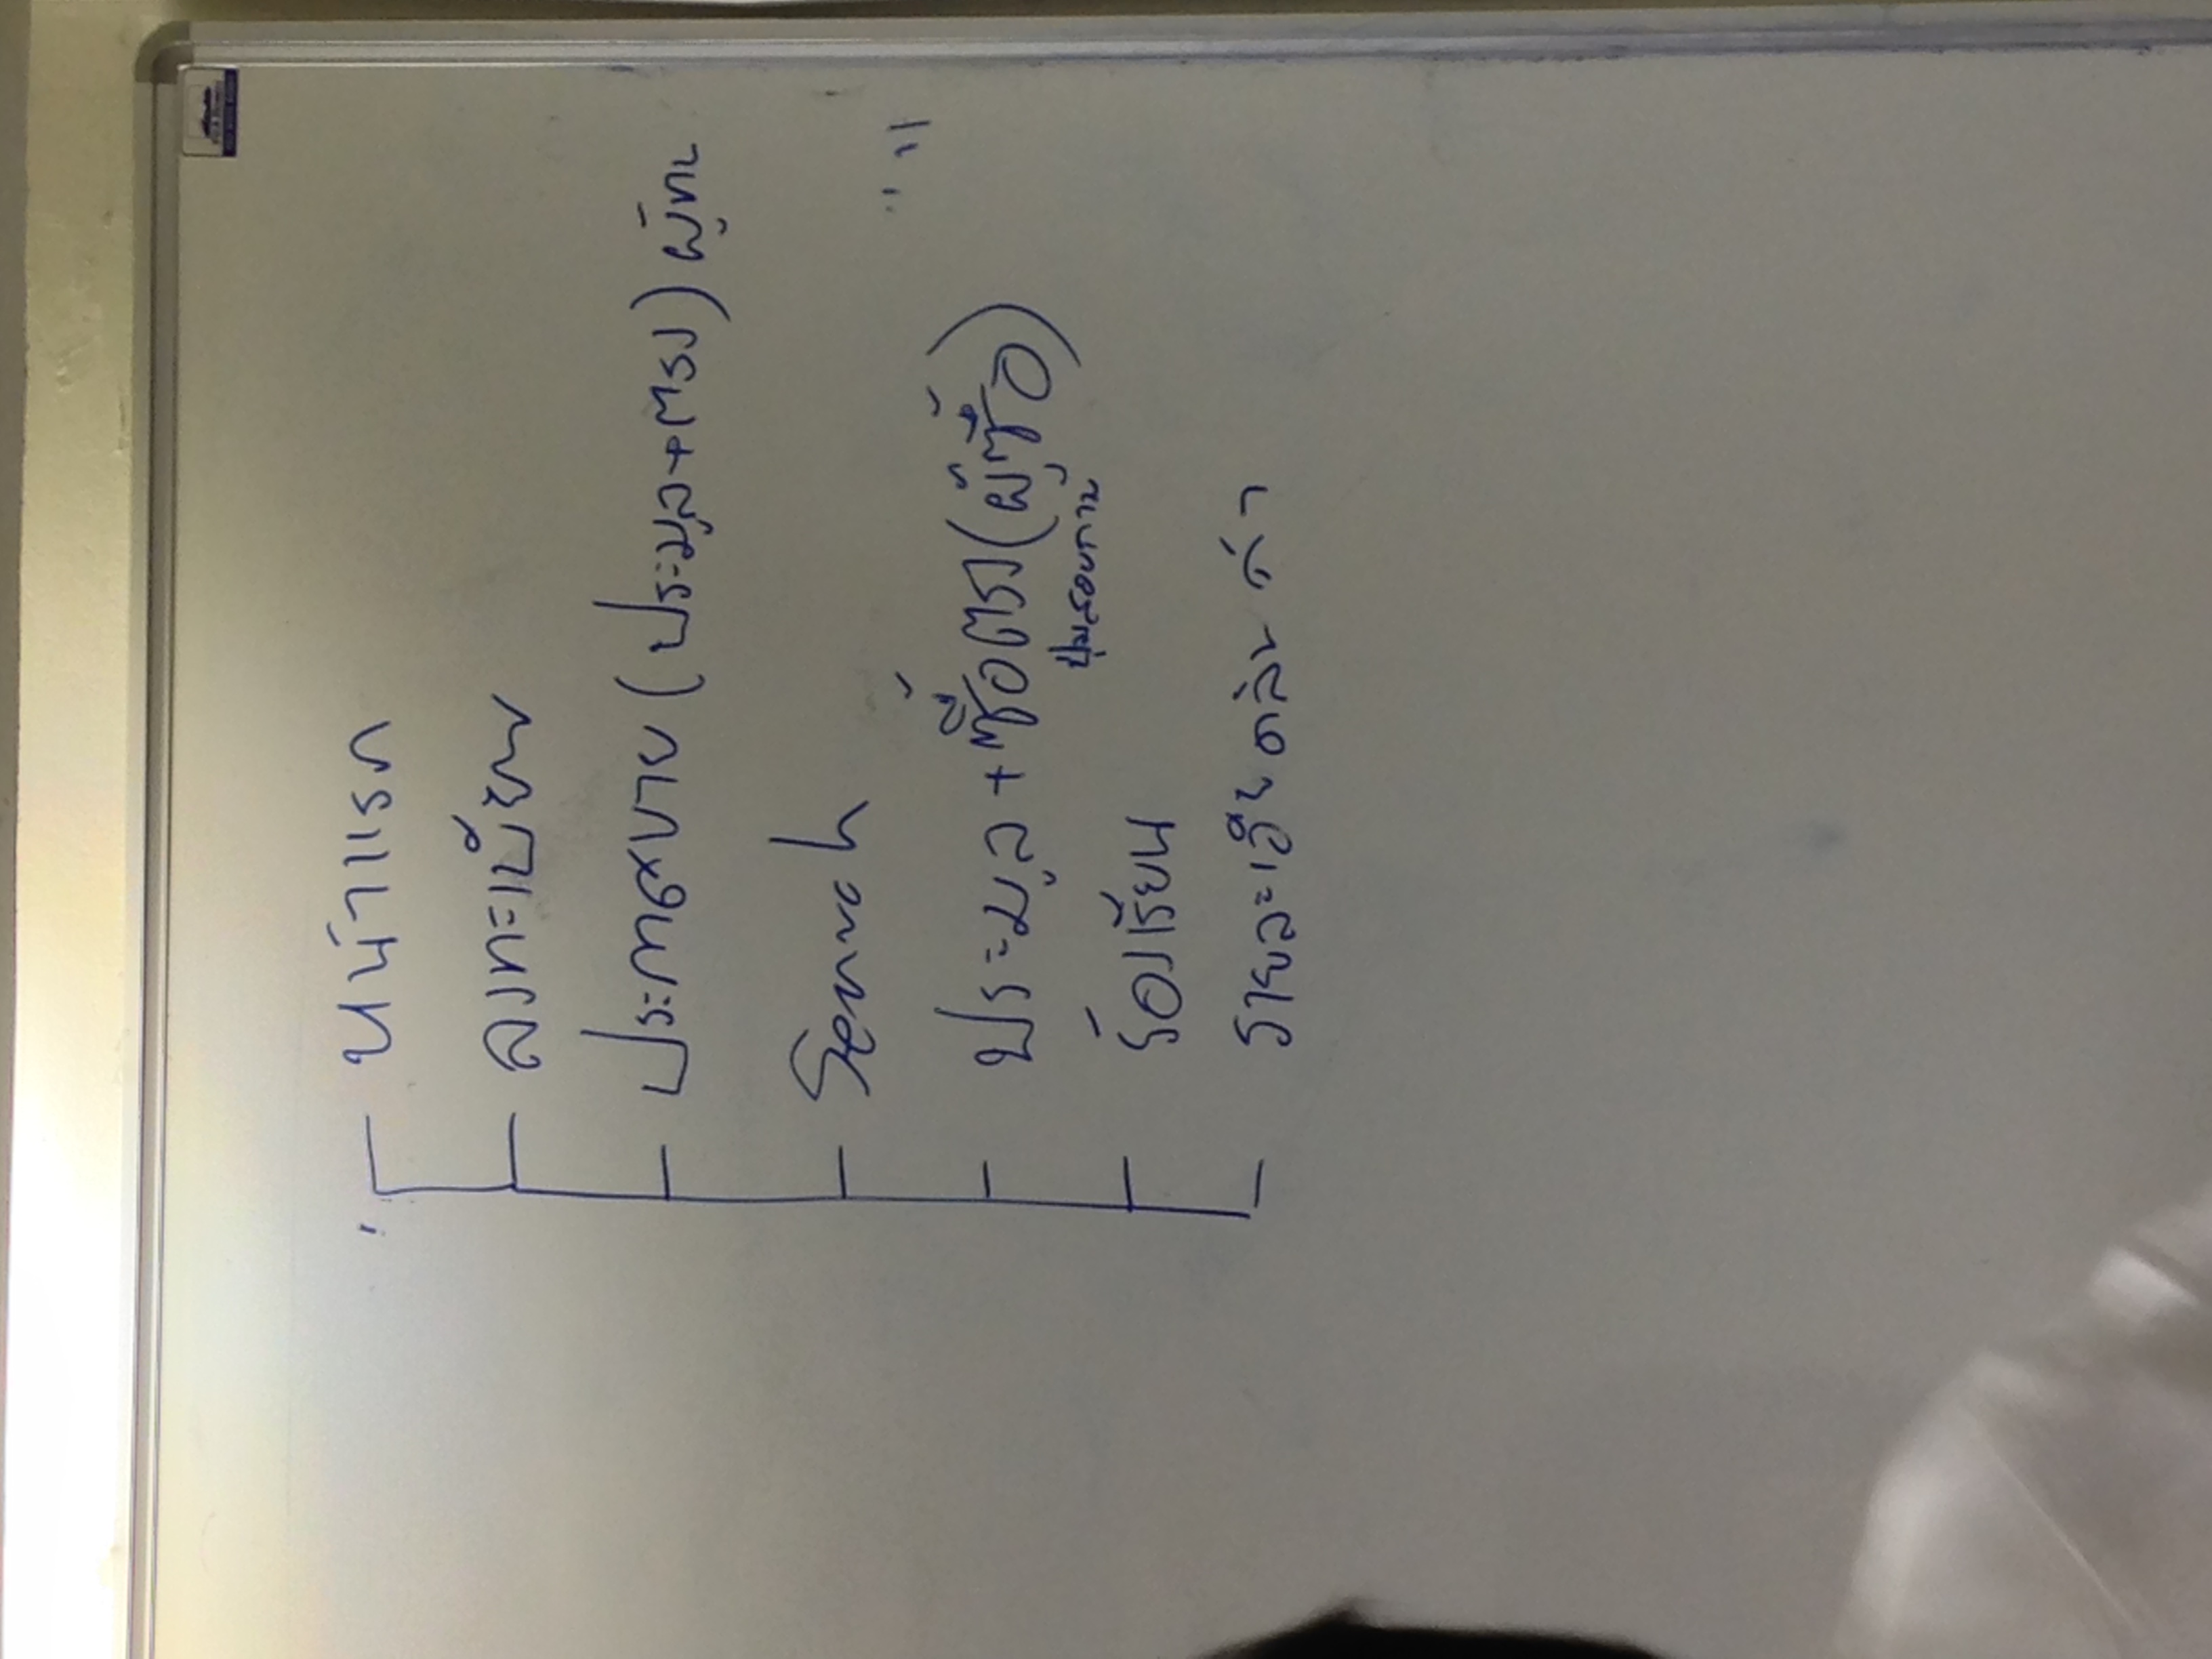 หน้าแรก
ลงทะเบียน
ประกาศขาย (ประมูล+ตรง)
Search
ประมูล + ซื้อตรง (ผู้ซื้อ)
ปุ่มสอบถาม
ร้องเรียน
รายละเอียดสินค้า